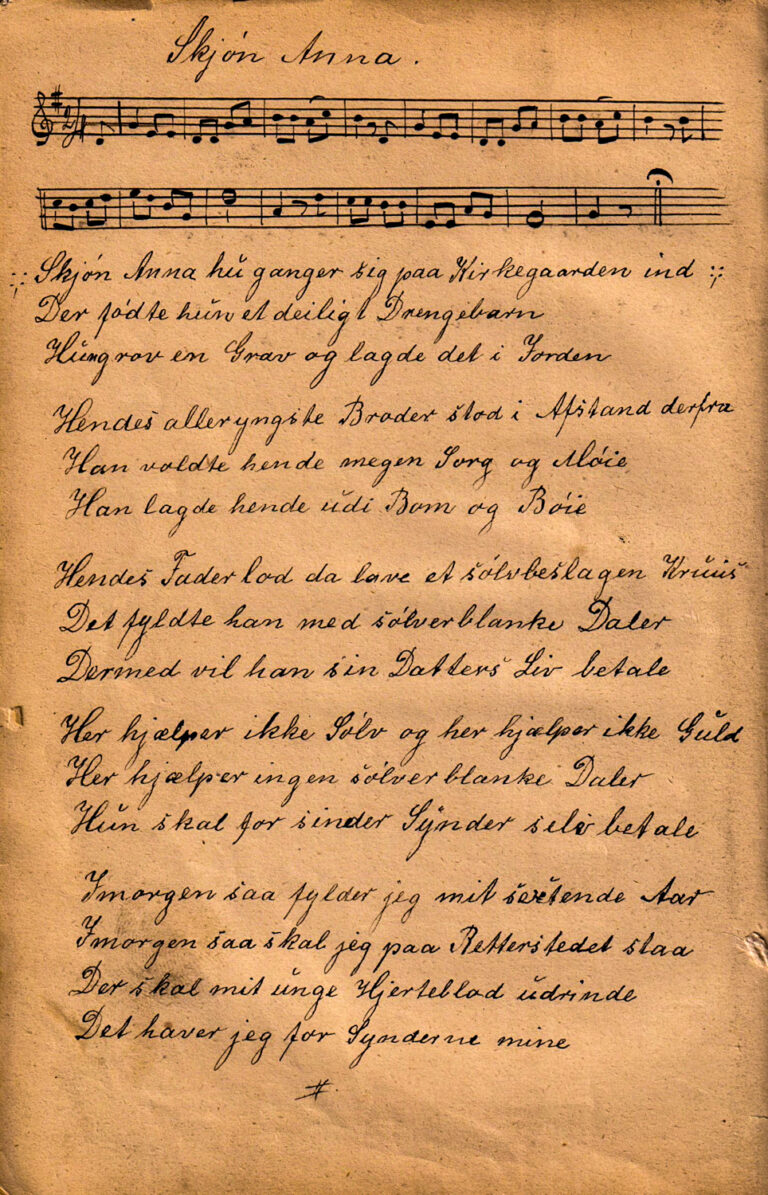 Skjón Anna.
2/4
:; Skjón Anna hŭ ganger sig paa Kirkegaarden ind :;
Der fódte hun et deiligt Drengebarn
Hun grov en Grav og lagde det i Jorden
Hendes alleryngste Broder stod i Afstand derfra
Han voldte hende megen Sorg og Móie
Han lagde hende ŭdi Bom og Bóie
Hendes Fader lod da lave et sólvbeslagen Krŭŭs
Det fyldte han med sólverblanke Daler
Dermed vil han sin Datters Liv betale
Her hjælper ikke Sólv og her hjælper ikke Gŭld
Her hjælper ingen sólverblanke Daler
Hŭn skal for sinder Synder selv betale
Imorgen saa fylder jeg mit sextende Aar
Imorgen saa skal jeg paa Retterstedet staa
Der skal mit ŭnge Hjerteblod ŭdrinde
Det haver jeg for Synderne mine